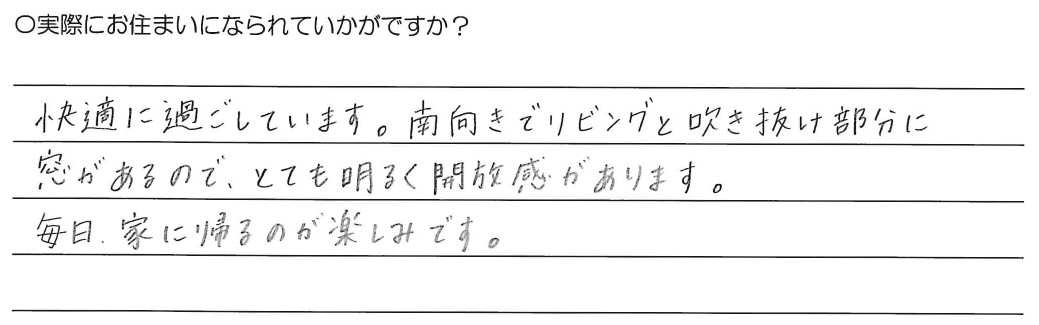 〇実際にお住まいになられていかがですか？
快適に過ごしています。南向きでリビングと吹き抜け部分に
窓があるので、とても明るく開放感があります。
毎日、家に帰るのが楽しみです。